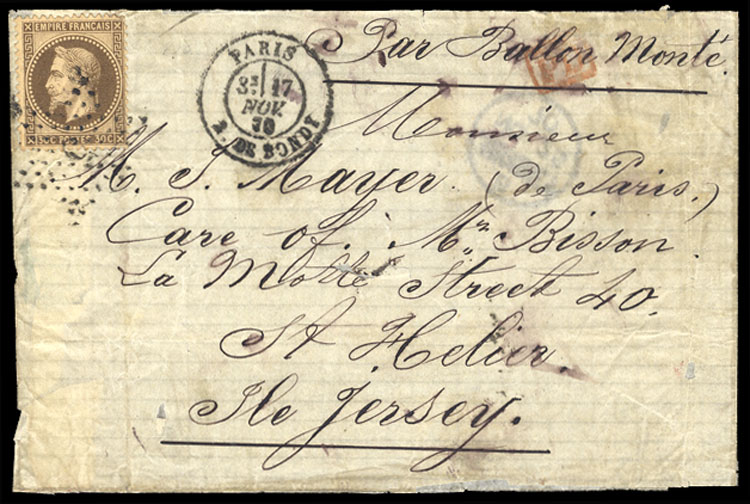 EMPIRE FRANCAIS
30C POSTES 30C
PARIS
17
NOV.
70
Par Ballon Monté
Monsieur
M. J. Mayer (de Paris.)
Care of. Mr. Bisson.
La Motte Street 40.
St Helier.
Ile Jersey.